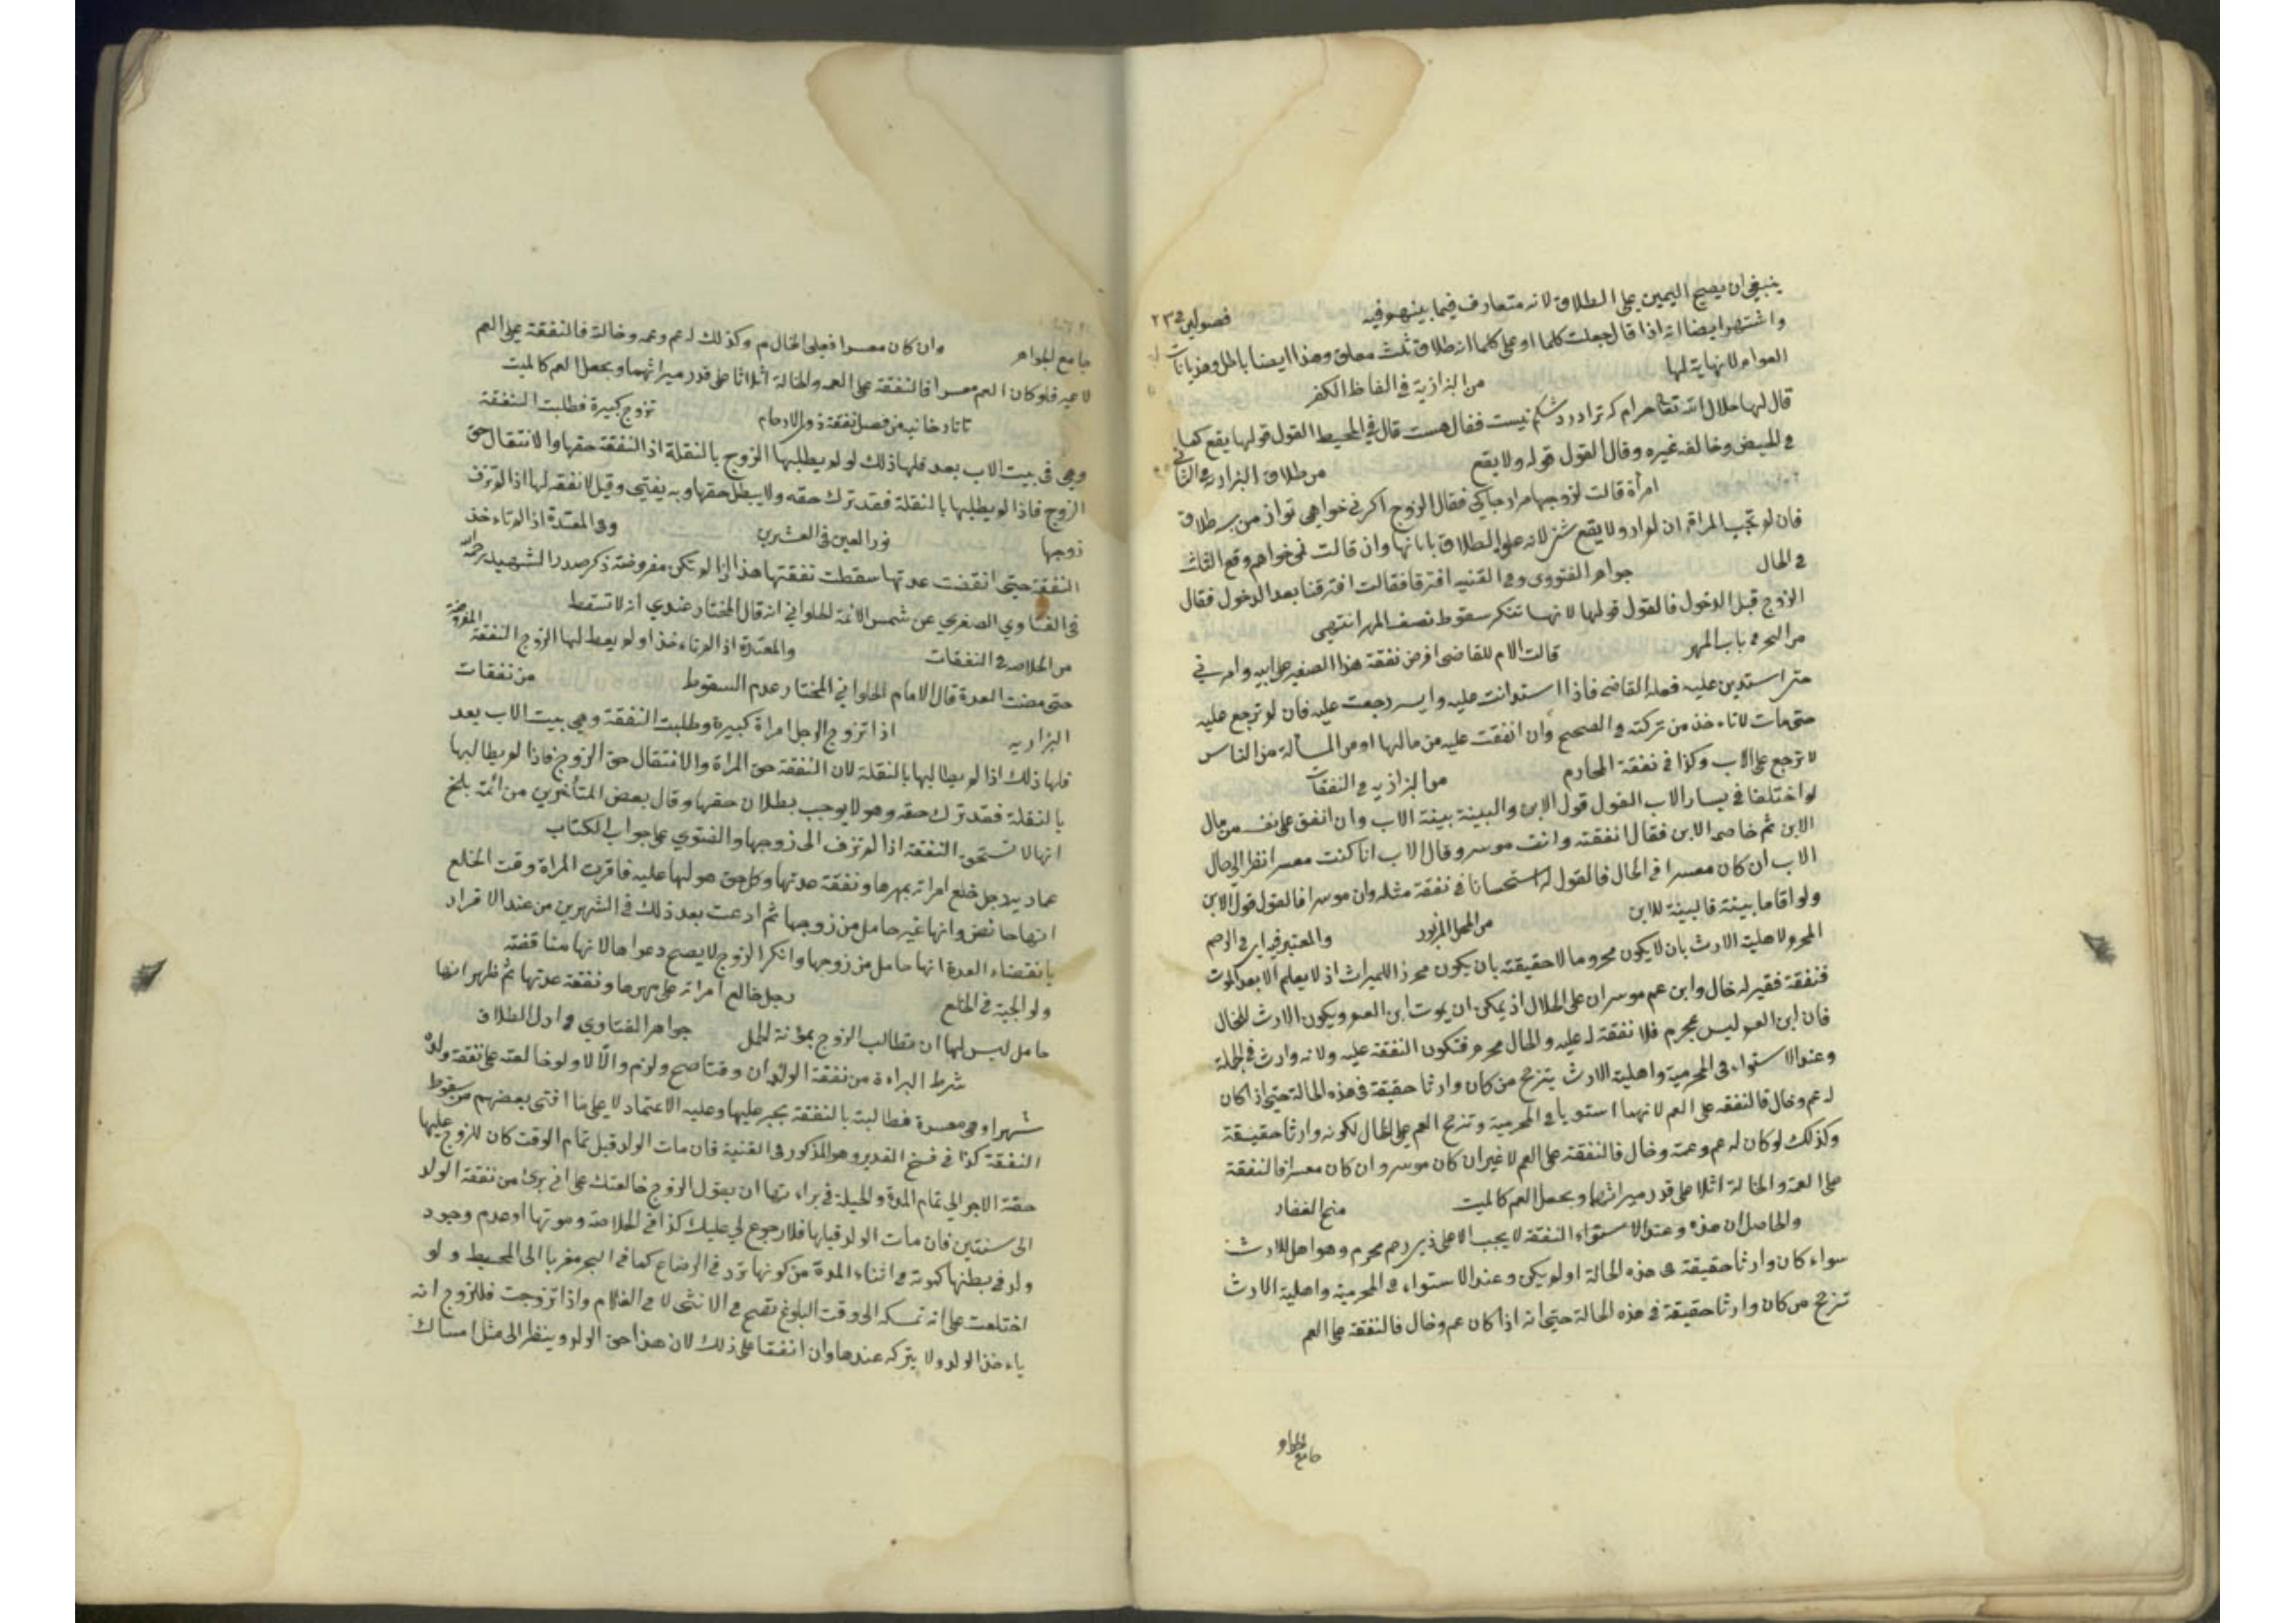 ينبغي ان يصح اليمين على الطلاق لانه متعارف فيما بينهم فيه فصولين في ٢٣
واشتهر ايضا انه اذا قال جعلت كلما او على كلما انه طلاق ثلث معلق وهذا ايضا باطل وهذيانات
العوام لا نهاية لها من البزازية في الفاظ الكفر
قال لها حلال الله تعالى حرام كه ترا درد شكم نيست فقال هست قال في المحيط القول قولها يقع كما
في الحيض وخالفه غيره وقال القول قوله ولا يقع من طلاق البزازية في الثاني
امرأة قالت لزوجها مراد جباكي فقال الزوج اكر نمي خواهي تو از من بسه طلاق
فان لم تجب المراة ان لم اراد ولا يقع شئ لانه علق الطلاق بابائها وان قالت نمي خواهم وقع الثلث
في الحال جواهر الفتووى وفي القنيه افترقا فقالت افترقنا بعد الدخول فقال
الزوج قبل الدخول فالقول قولها لانها تنكر سقوط نصف المهر انتهى
من البحر في باب المهر قالت الام للقاضى افرض نفقة هذا الصغير على ابيه وامرني
حتى استدين عليه فعله القاضى فاذا استدانت عليه وايسر رجعت عليه فان لم ترجع عليه
حتى مات لا تاءخذ من تركته في الصحيح وان انفقت عليه من مالها او من المسألة من الناس
لا ترجع على الاب وكذا في نفقة المحارم من البزازيه في النفقات
لو اختلفا في يسار الاب القول قول الابن والبينة بينة الاب وان انفق على نفسه من مال
الابن ثم خاصمه الابن فقال انفقته وانت موسر وقال الاب انا كنت معسرا نظر الى حال
الاب ان كان معسرا في الحال فالقول له استحسانا في نفقة مثله وان موسرا فالقول قول الابن
ولو اقاما بينة فالبينة للابن من المحل المزبور والمعتبر فيه اى في الرحم
المحرم لاهلية الارث بان لا يكون محروما لا حقيقته بان يكون محرزا للميراث اذ لا يعلم الا بعد الموت
فنفقة فقير له خال وابن عم موسران على الخال اذ يمكن ان يموت ابن العم ويكون الارث للخال
فان ابن العم ليس بمحرم فلا نفقة له عليه والخال محرم فتكون النفقة عليه ولانه وارث في الجملة
وعند الاستواء في المحرمية واهلية الارث يترجح من كان وارثا حقيقة في هذه الحالة حتى اذا كان
له عم وخال فالنفقه على العم لانهما استويا في المحرمية وترجح العم على الخال لكونه وارثا حقيقة
وكذلك لو كان له عم وعمة وخال فالنفقة على العم لا غير ان كان موسر وان كان معسرا فالنفقة
على العمة والخالة اثلاثا على قدر ميراثهما ويجعل العم كالميت منح الغفار
والحاصل ان هذه وعند الاستواء النفقة لا يجب الا على ذي رحم محرم وهو اهل للارث
سواء كان وارثا حقيقة في هذه الحالة او لم يكن وعند الاستواء في المحرمية واهلية الارث
ترجح من كان وارثا حقيقة في هذه الحالة حتى انه اذا كان عم وخال فالنفقة على العم
جامع الجواهر وان كان معسرا فعلى الخال م وكذلك له عم وعمه وخالة فالنفقة على العم
لا غير فلو كان العم معسرا فالنفقة على العمه والخالة اثلاثا على قدر ميراثهما ويجعل العم كالميت
تاتارخانيه من فصل نفقة ذوى الارحام تزوج كبيرة فطلبت النفقة
وهي في بيت الاب بعد فلها ذلك لو لم يطلبها الزوج بالنقلة اذ النفقة حقها والانتقال حق
الزوج فاذا لم يطلبها بالنقلة فقد ترك حقه ولا يبطل حقها وبه يفتى وقيل لا نفقه لها اذا لم تزف
زوجها نور العين في العشرين وفي المعتدة اذا لم تاءخذ
النفقة حتى انقضت عدتها سقطت نفقتها هذا اذا لم تكن مفروضة ذكر صدر الشهيد رحمه الله
في الفتاوي الصغري عن شمس الائمة الحلواني انه قال المختار عندي انه لا تسقط
من الخلاصه في النفقات والمعتدة اذا لم تاءخذ او لم يعط لها الزوج النفقة المفروضة
حتى مضت العدة قال الامام الحلواني المختار عدم السقوط من نفقات
البزازيه اذا تزوج الرجل امراة كبيرة وطلبت النفقة وهي بيت الاب بعد
فلها ذلك اذا لم يطالبها بالنقلة لان النفقة حق المراة والانتقال حق الزوج فاذا لم يطالبها
بالنقلة فقد ترك حقه وهو لا يوجب بطلان حقها وقال بعض المتأخرين من ائمة بلخ
انها لا تستحق النفقة اذا لم تزف الى زوجها والفتوي على جواب الكتاب
عماديه رجل خلع امراته بمهرها ونفقة عدتها وكل حق هو لها عليه فاقرت المراة وقت الخلع
انها حائض وانها غير حامل من زوجها ثم ادعت بعد ذلك في الشهرين من عند الاقرار
بانقضاء العدة انها حامل من زوجها وانكر الزوج لا يصح دعواها لانها مناقضه
ولوالجية في الخلع رجل خالع امراته على مهرها ونفقة عدتها ثم ظهر انها
حامل ليس لها ان تطالب الزوج بمؤنة الحمل جواهر الفتاوي في اول الطلاق
شرط البراءة من نفقة الولد ان وقتا صح ولزم والا لا ولو خالعته على نفقة ولده
شهرا وهى معسرة فطالبته بالنفقة يجبر عليها وعليه الاعتماد لا على ما افتى بعضهم من سقوط
النفقة كذا في فتح القدير وهو المذكور في القنية فان مات الولد قبل تمام الوقت كان للزوج عليها
حقة الاجر الى تمام المدة والحيلة في براءتها ان يقول الزوج خالعتك على اني برئ من نفقة الولد
الى سنتين فان مات الولد قبلها فلا رجوع لي عليك كذا في الخلاصة وموتها او عدم وجود
ولد في بطنها كموته في اثناء المدة من كونها ترد في الرضاع كما في البحر معزيا الى المحيط ولو
اختلعت على انه تمسكه الى وقت البلوغ تصح في الانثى لا في الغلام واذا تزوجت فللزوج انه
ياءخذ الولد ولا يتركه عندها وان اتفقا على ذلك لان هذا حق الولد وينظر الى مثل امساك